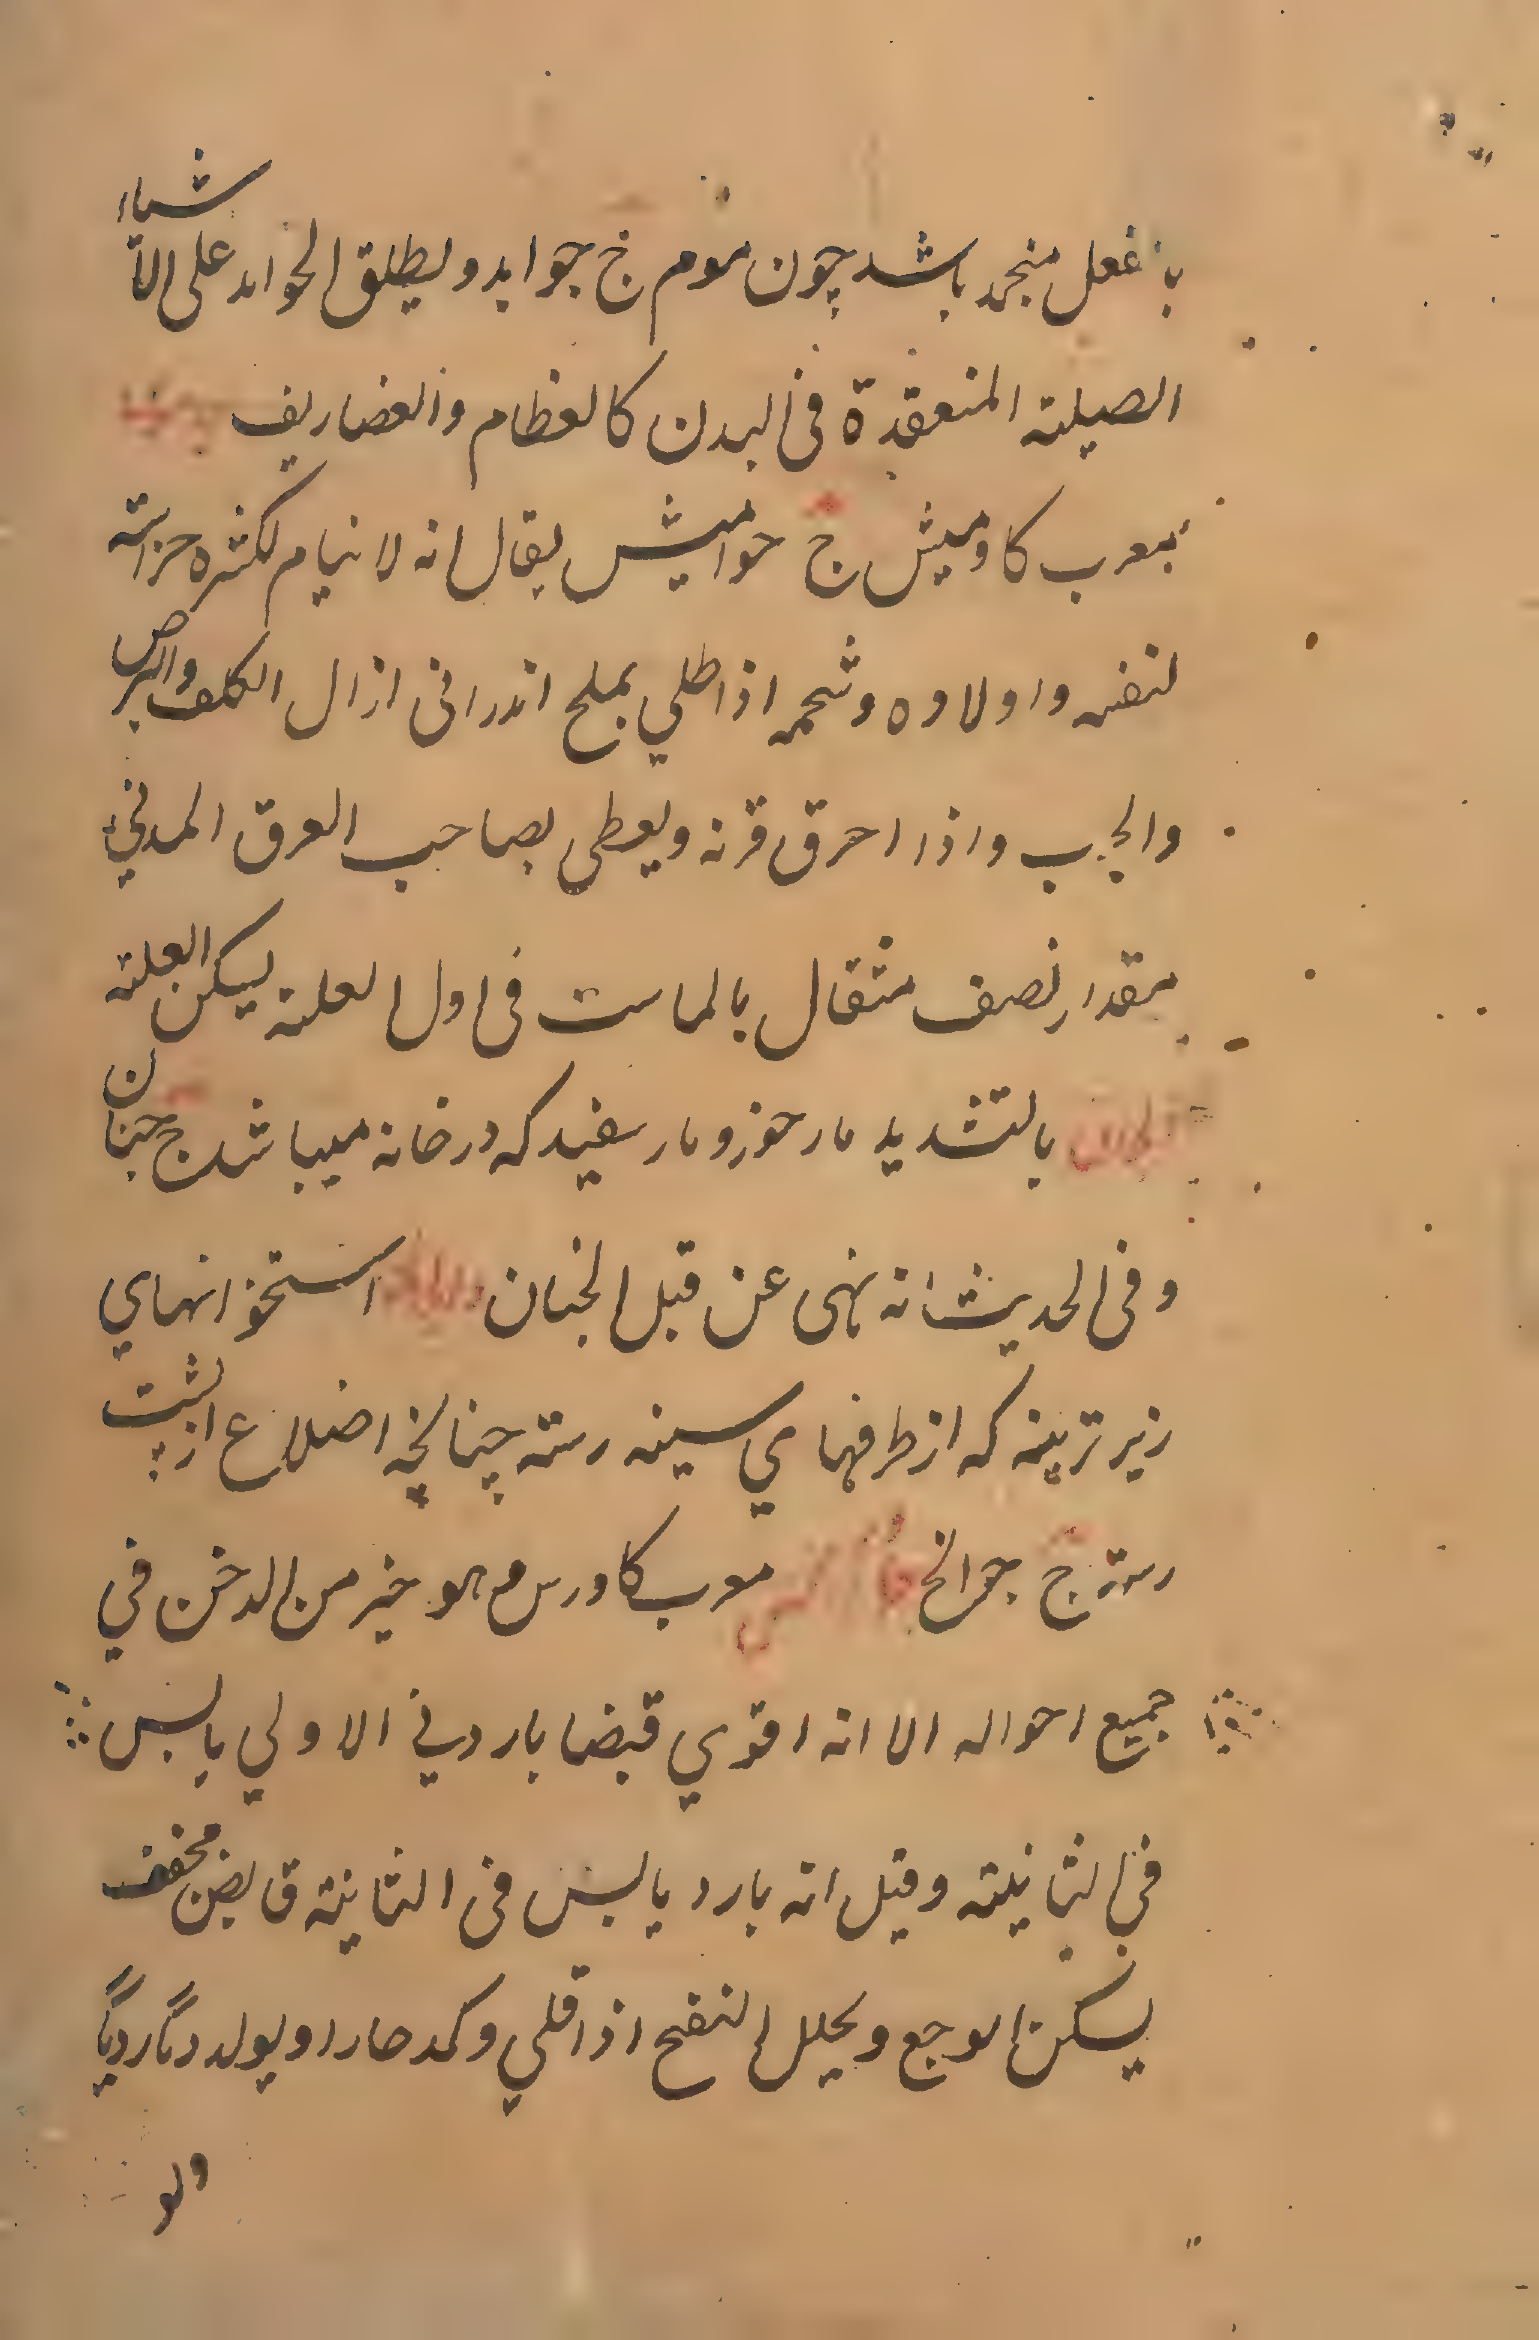 بالفعل منجمد باشد چون موم ج جوامد و يطلق الجوامد على الاشياء
الصلبة المنعقدة فى البدن كالعظام والغضاريف
معرب كاوميش ج جواميش يقال انه لا ينام لكثرة حراسته
لنفسه واولاده وشحمه اذا طلي بملح اندرانى ازال الكلف والبرص
والجرب واذا احرق قرنه ويعطى لصاحب العرق المدني
مقدار نصف مثقال بالماست فى اول العلة ليسكن العلة
الجان بالتشديد مار خورد و مار سفيد كه در خانه ميباشد ج جنان
وفى الحديث انه نهى عن قتل الجنان استخوانهاي
زير ترينه كه از طرفهاي سينه رسته چنانچه اضلاع از پشت
رسته ج جوانح معرب كاورس وهو خير من الدخن في
جميع احواله الا انه اقوي قبضا بارد في الاولي يابس
في الثانية وقيل انه بارد يابس فى الثانية قابض مجفف
يسكن الوجع ويحلل النفخ اذا قلي وكمد حارا ويولد دمًا رديًا
ولو